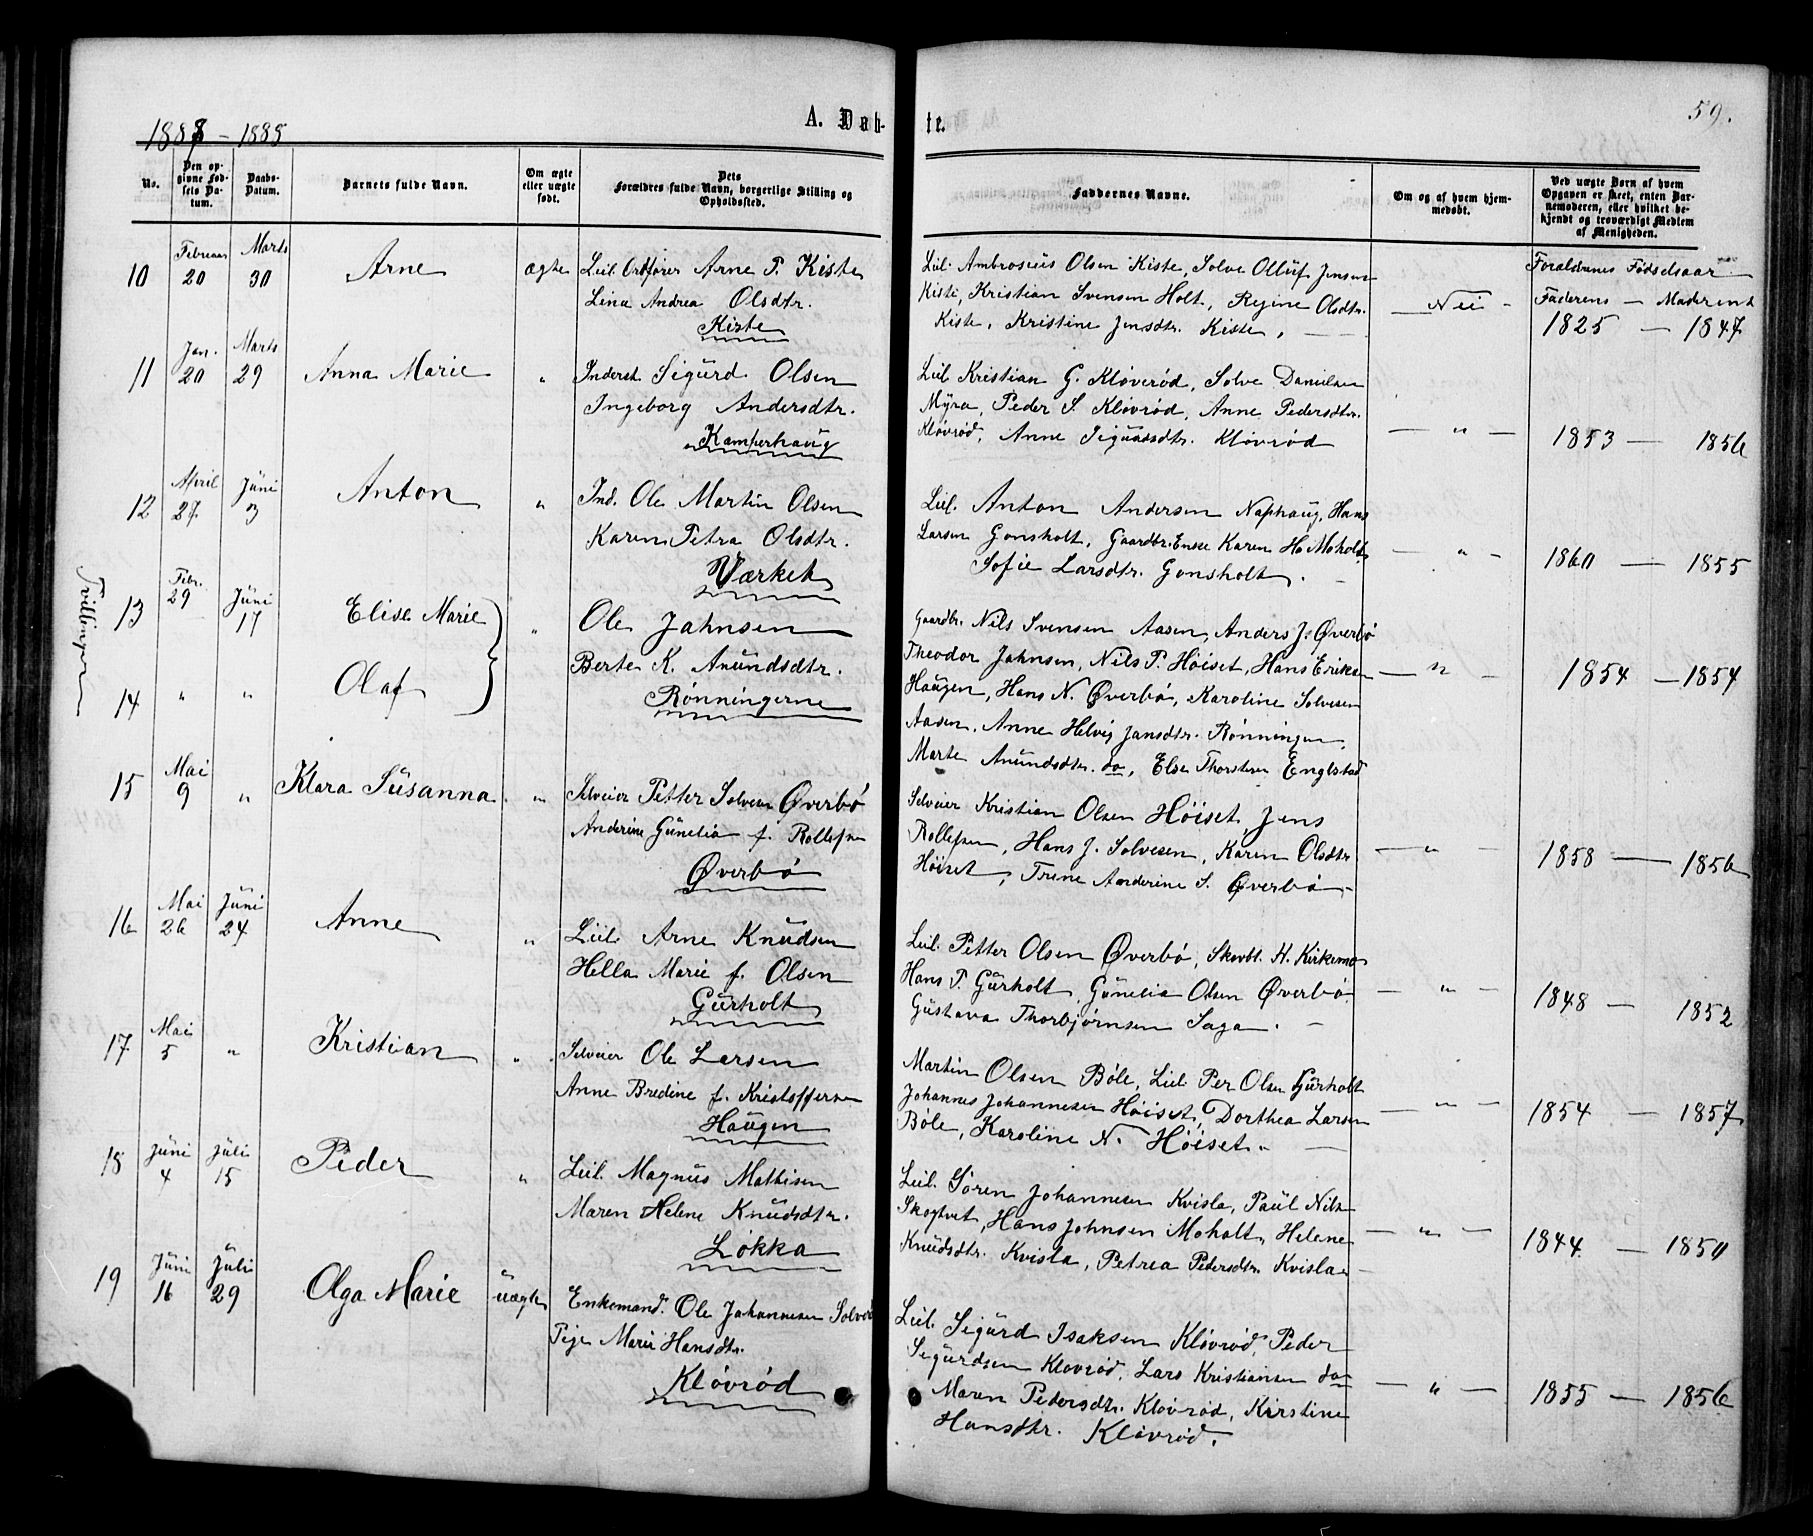 59.
1888 - 1885
A. Døb-
te.
No.
Den op-
givne Fød-
sels Da-
tum.
Daabs-
Datum.
Barnets fulde Navn.
Om ægte
eller uægte
født.
Dets
Forældres fulde Navn, borgerlige Stilling og
Opholdssted.
Faddernes Navne.
Om og af hvem hjem-
medøbt.
Ved uægte Børn af hvem
Opgaven er skeet, enten Bar-
nemoderen, eller hvilket be-
kjendt og troværdigt Medlem
af Menigheden.
10 Februar 20 Marts 30 Arne ægte
Leil. Ordfører Arne P. Kiste
Lina Andrea Olsdtr.
Kiste
Leil. Ambrosius Olsen Kiste, Solve Olluf Jensen
Kiste, Kristian Svensen Holt, Regine Olsdtr.
Kiste, Kristine Jensdtr. Kiste. —
— Nei -
Forældrenes Fødselsaar
Faderens — Moderens
1825 — 1847
11 Jan. 20 Marts 29 Anna Marie "
Inderst Sigurd Olsen
Ingeborg Andersdtr.
Kamperhaug
Leil. Kristian G. Kløverød, Solve Danielsen
Myra, Peder S. Kløvrød, Anne Pedersdtr.
Kløvrød, Anne Sigurdsdtr. Kløvrød
— " —
1853 — 1856
12 April 27. Juni 3 Anton "
Ind. Ole Martin Olsen
Karen Petra Olsdtr.
Værket
Leil. Anton Andersen Naphaug, Hans
Larsen Gonsholt, Gaardbr. Enke Karen H. Moholt
Sofie Larsdtr. Gonsholt. —
— " -
1860 — 1855
Tvillinger
13 Febr. 29 Juni 17 Elise Marie "
14 " " Olaf
Ole Jahnsen
Berte K. Anundsdtr.
Rønningerne
Gaardbr. Nils Svensen Aasen, Anders J. Øverbø
Theodor Jahnsen, Nils P. Høiset, Hans Eriksen
Haugen, Hans N. Øverbø, Karoline Solvesen
Aasen, Anne Helvig Jansdtr. Rønningen,
Marte Anundsdtr. do, Else Thorstens Englstad
— " -
1854 — 1854
15 Mai 9 " Klara Susanna "
Selveier Petter Solvesen Øverbø
Anderine Gunelia f. Rollefsen
Øverbø
Selveier Kristian Olsen Høiset, Jens
Rollefsen, Hans J. Solvesen, Karen Olsdtr
Høiset, Trine Anderine S. Øverbø -
— " —
1858 — 1856
16 Mai 26 Juni 24 Anne "
Leil. Arne Knudsen
Hella Marie f. Olsen
Gurholt
Leil. Petter Olsen Øverbø, Skovbt. H. Kirkemo
Hans P. Gurholt, Gunelia Olsen Øverbø
Gustava Thorbjørnsen Saga. —
— " —
1848 — 1852
17 Mai 5 " Kristian "
Selveier Ole Larsen
Anne Bredine f. Kristoffersen
Haugen
Martin Olsen Bøle, Leil. Per Olsen Gurholt
Johannes Johannesen Høiset, Dorthea Larsen
Bøle, Karoline N. Høiset. —
— " —
1854 — 1857
18 Juni 4 Juli 15 Peder "
Leil. Magnus Mathisen
Maren Helene Knudsdtr.
Løkka
Leil. Søren Johannesen Kvisla, Paul Nils
Skogtvet, Hans Johnsen Moholt, Helene
Knudsdtr. Kvisla, Petrea Pedersdtr. Kvisla -
— " —
1844 — 1850
19 Juni 16 Juli 29 Olga Marie uægte
Enkemand. Ole Johannesen Solverø
Pige Marie Hansdtr.
Kløvrød
Leil. Sigurd Isaksen Kløvrød, Peder
Sigurdsen Kløvrød, Lars Kristiansen do
Maren Pedersdtr. Kløvrød, Kirstine
Hansdtr. Kløvrød.
— " —
1855 — 1856